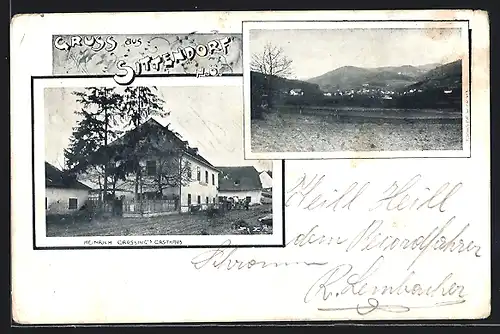 GRUSS AUS
SITTENDORF
N.Ö.
HEINRICH GROSSING'S GASTHAUS
Heill Heill
dem Recordfahrer
Schramm
R. Lembacher